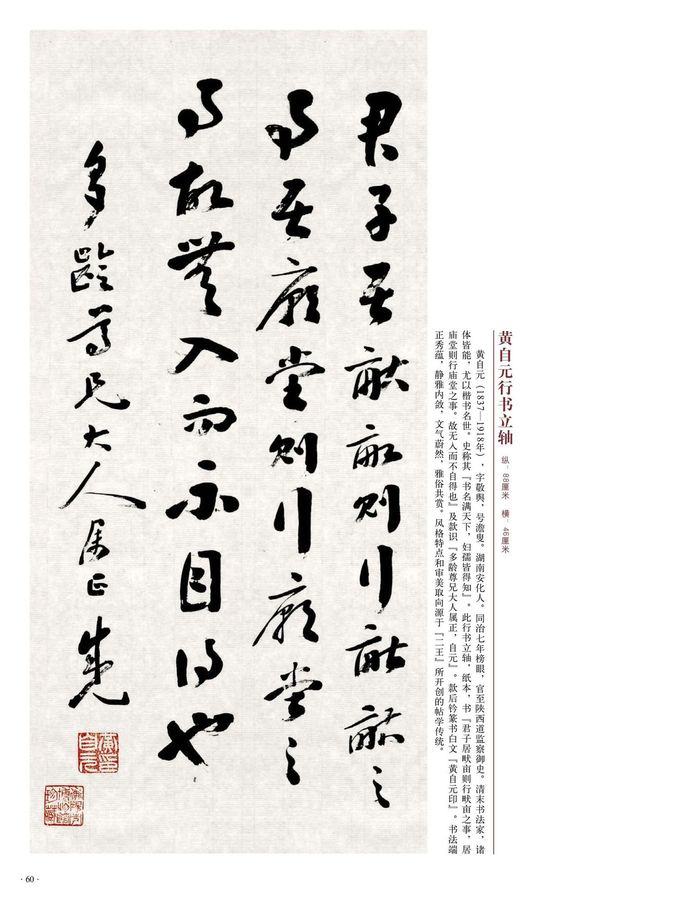 黄自元行书立轴 纵：88厘米 横：46厘米
黄自元（1837—1918年），字敬舆，号澹叟。湖南安化人。同治七年榜眼，官至陕西道监察御史。清末书法家，诸
体皆能，尤以楷书名世。史称其『书名满天下，妇孺皆得知』。此行书立轴，纸本，书『君子居畎亩则行畎亩之事，居
庙堂则行庙堂之事。故无人而不自得也』及款识『多龄尊兄大人属正，自元』。款后钤篆书白文『黄自元印』。书法端
正秀蕴，静雅内敛，文气蔚然，雅俗共赏。风格特点和审美取向源于『二王』所开创的帖学传统。
君子居畎畝則行畎畝之
事居廟堂則行廟堂之
事故無入而不自得也
多齡尊兄大人属正 自元
黃自元印
· 60 ·